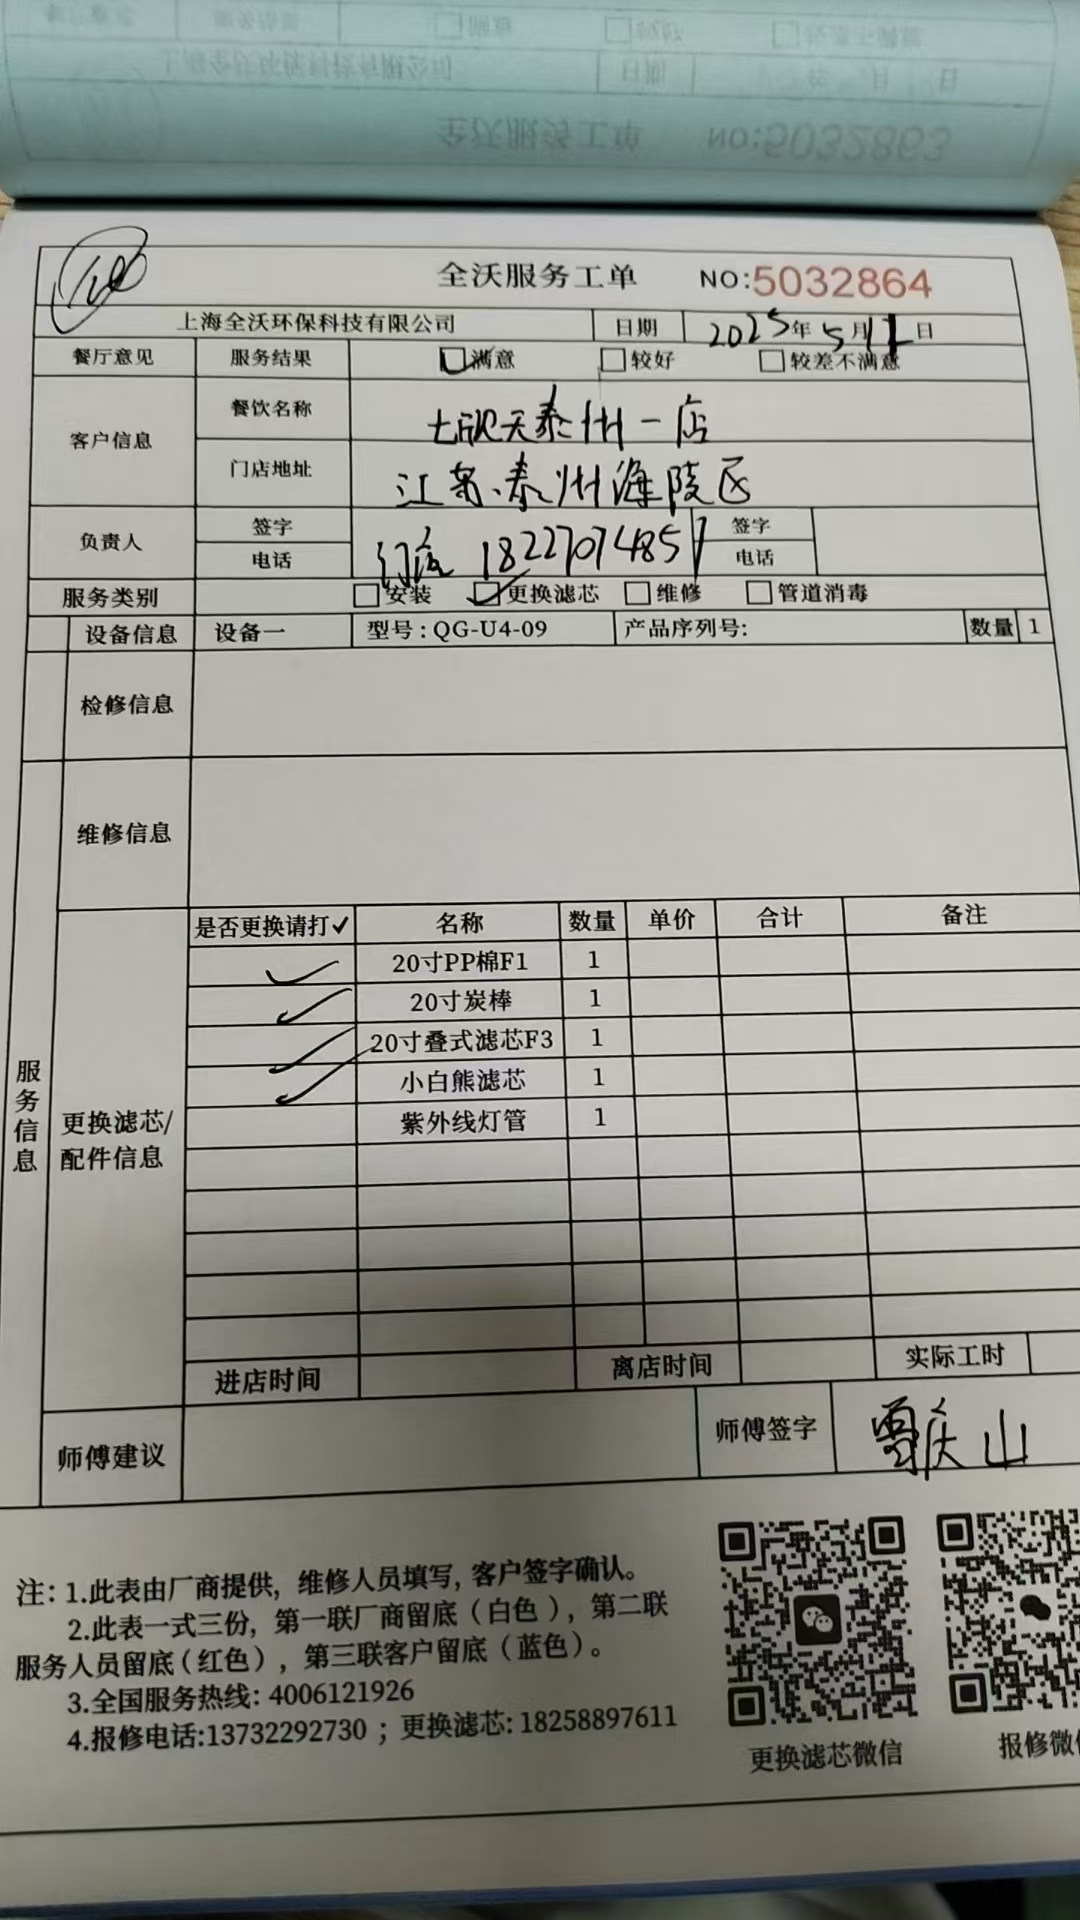 全沃服务工单 NO:5032864
上海全沃环保科技有限公司 日期 2025年5月11日
餐厅意见 服务结果 满意 较好 较差不满意
客户信息 餐饮名称 七欣天泰州一店
门店地址 江苏、泰州海陵区
负责人 签字 签字
电话 18227074851 电话
服务类别 安装 更换滤芯 维修 管道消毒
设备信息 设备一 型号:QG-U4-09 产品序列号: 数量 1
检修信息
维修信息
服务信息
更换滤芯/配件信息
是否更换请打✓ 名称 数量 单价 合计 备注
✓ 20寸PP棉F1 1
✓ 20寸炭棒 1
✓ 20寸叠式滤芯F3 1
✓ 小白熊滤芯 1
紫外线灯管 1
进店时间 离店时间 实际工时
师傅建议 师傅签字
注: 1.此表由厂商提供, 维修人员填写, 客户签字确认。
2.此表一式三份, 第一联厂商留底(白色), 第二联
服务人员留底(红色), 第三联客户留底(蓝色)。
3.全国服务热线: 4006121926
4.报修电话:13732292730 ; 更换滤芯: 18258897611
更换滤芯微信 报修微信